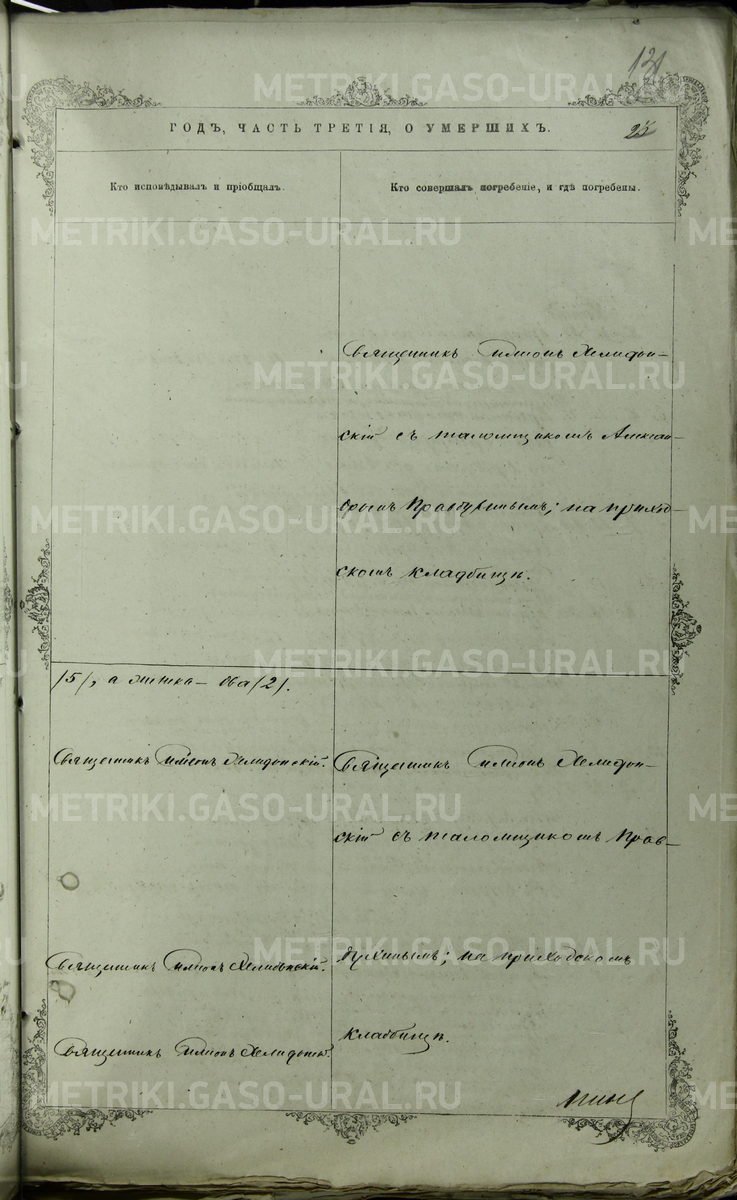 131
ГОДЪ, ЧАСТЬ ТРЕТІЯ, О УМЕРШИХЪ.
25
Кто исповѣдывалъ и пріобщалъ.
Кто совершалъ погребеніе, и гдѣ погребены.
Священникъ Симеонъ Хелидон-
скій съ псаломщикомъ Алексан-
дромъ Правдухинымъ; на приход-
скомъ кладбищѣ.
/5/, а женска – два /2/.
Священникъ Симеонъ Хелидонскій.
Священникъ Симеонъ Хелидон-
скій съ псаломщикомъ Прав-
духинымъ; на приходскомъ
кладбищѣ.
Священникъ Симеонъ Хелидонскій.
Священникъ Симеонъ Хелидонскій.
METRIKI.GASO-URAL.RU